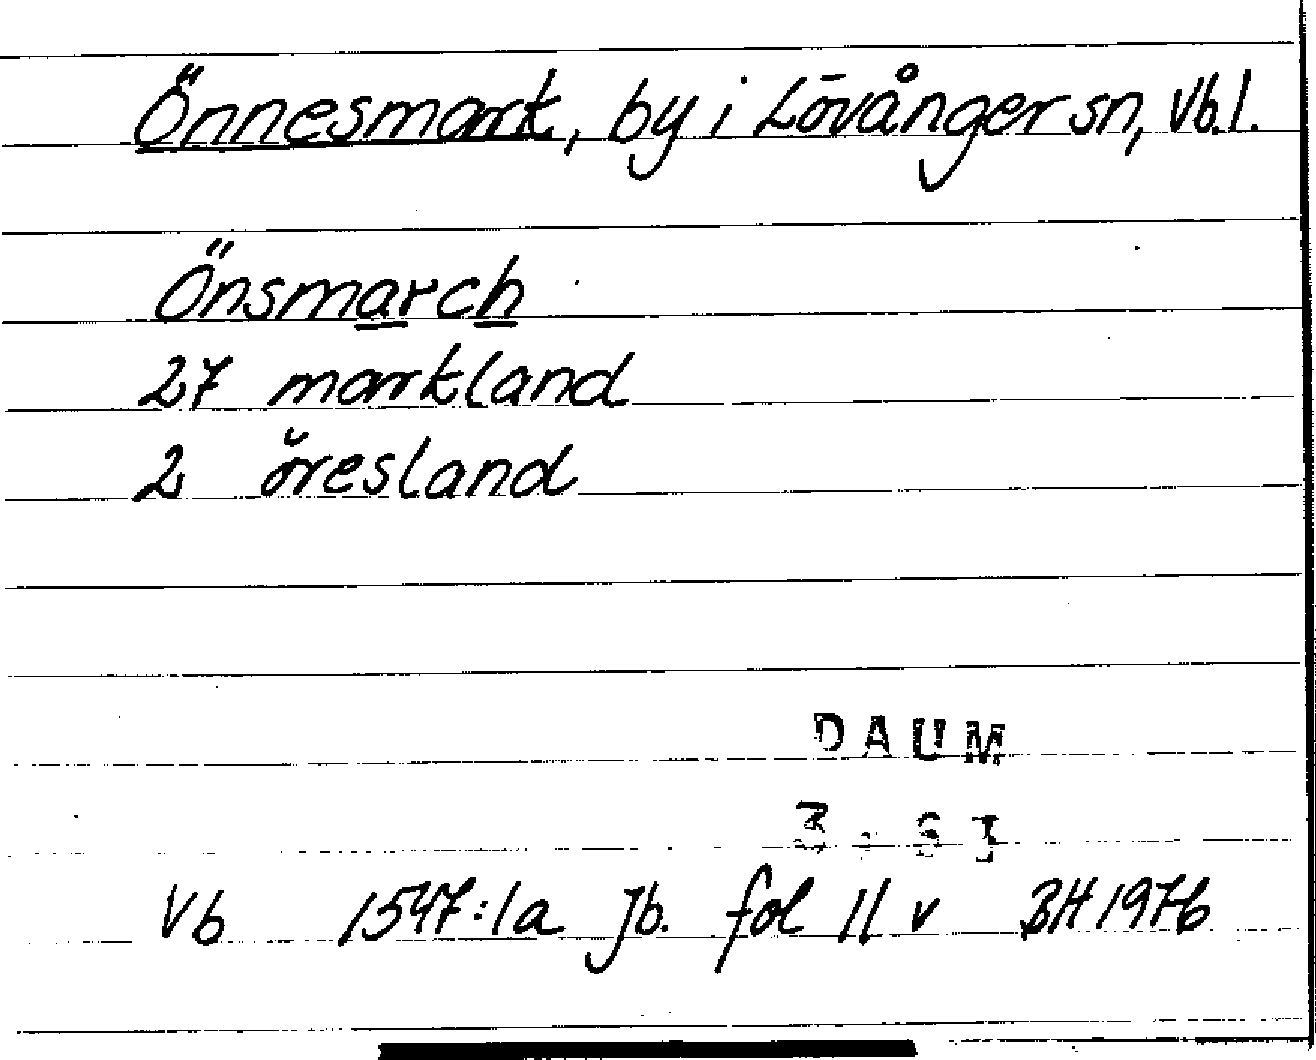 Önnesmark, by i Lövånger sn, Vb.l.
Önsmarch
27 markland
2 öresland
DAUM
Vb 1547:1a Jb. fol 11 v BH 1976